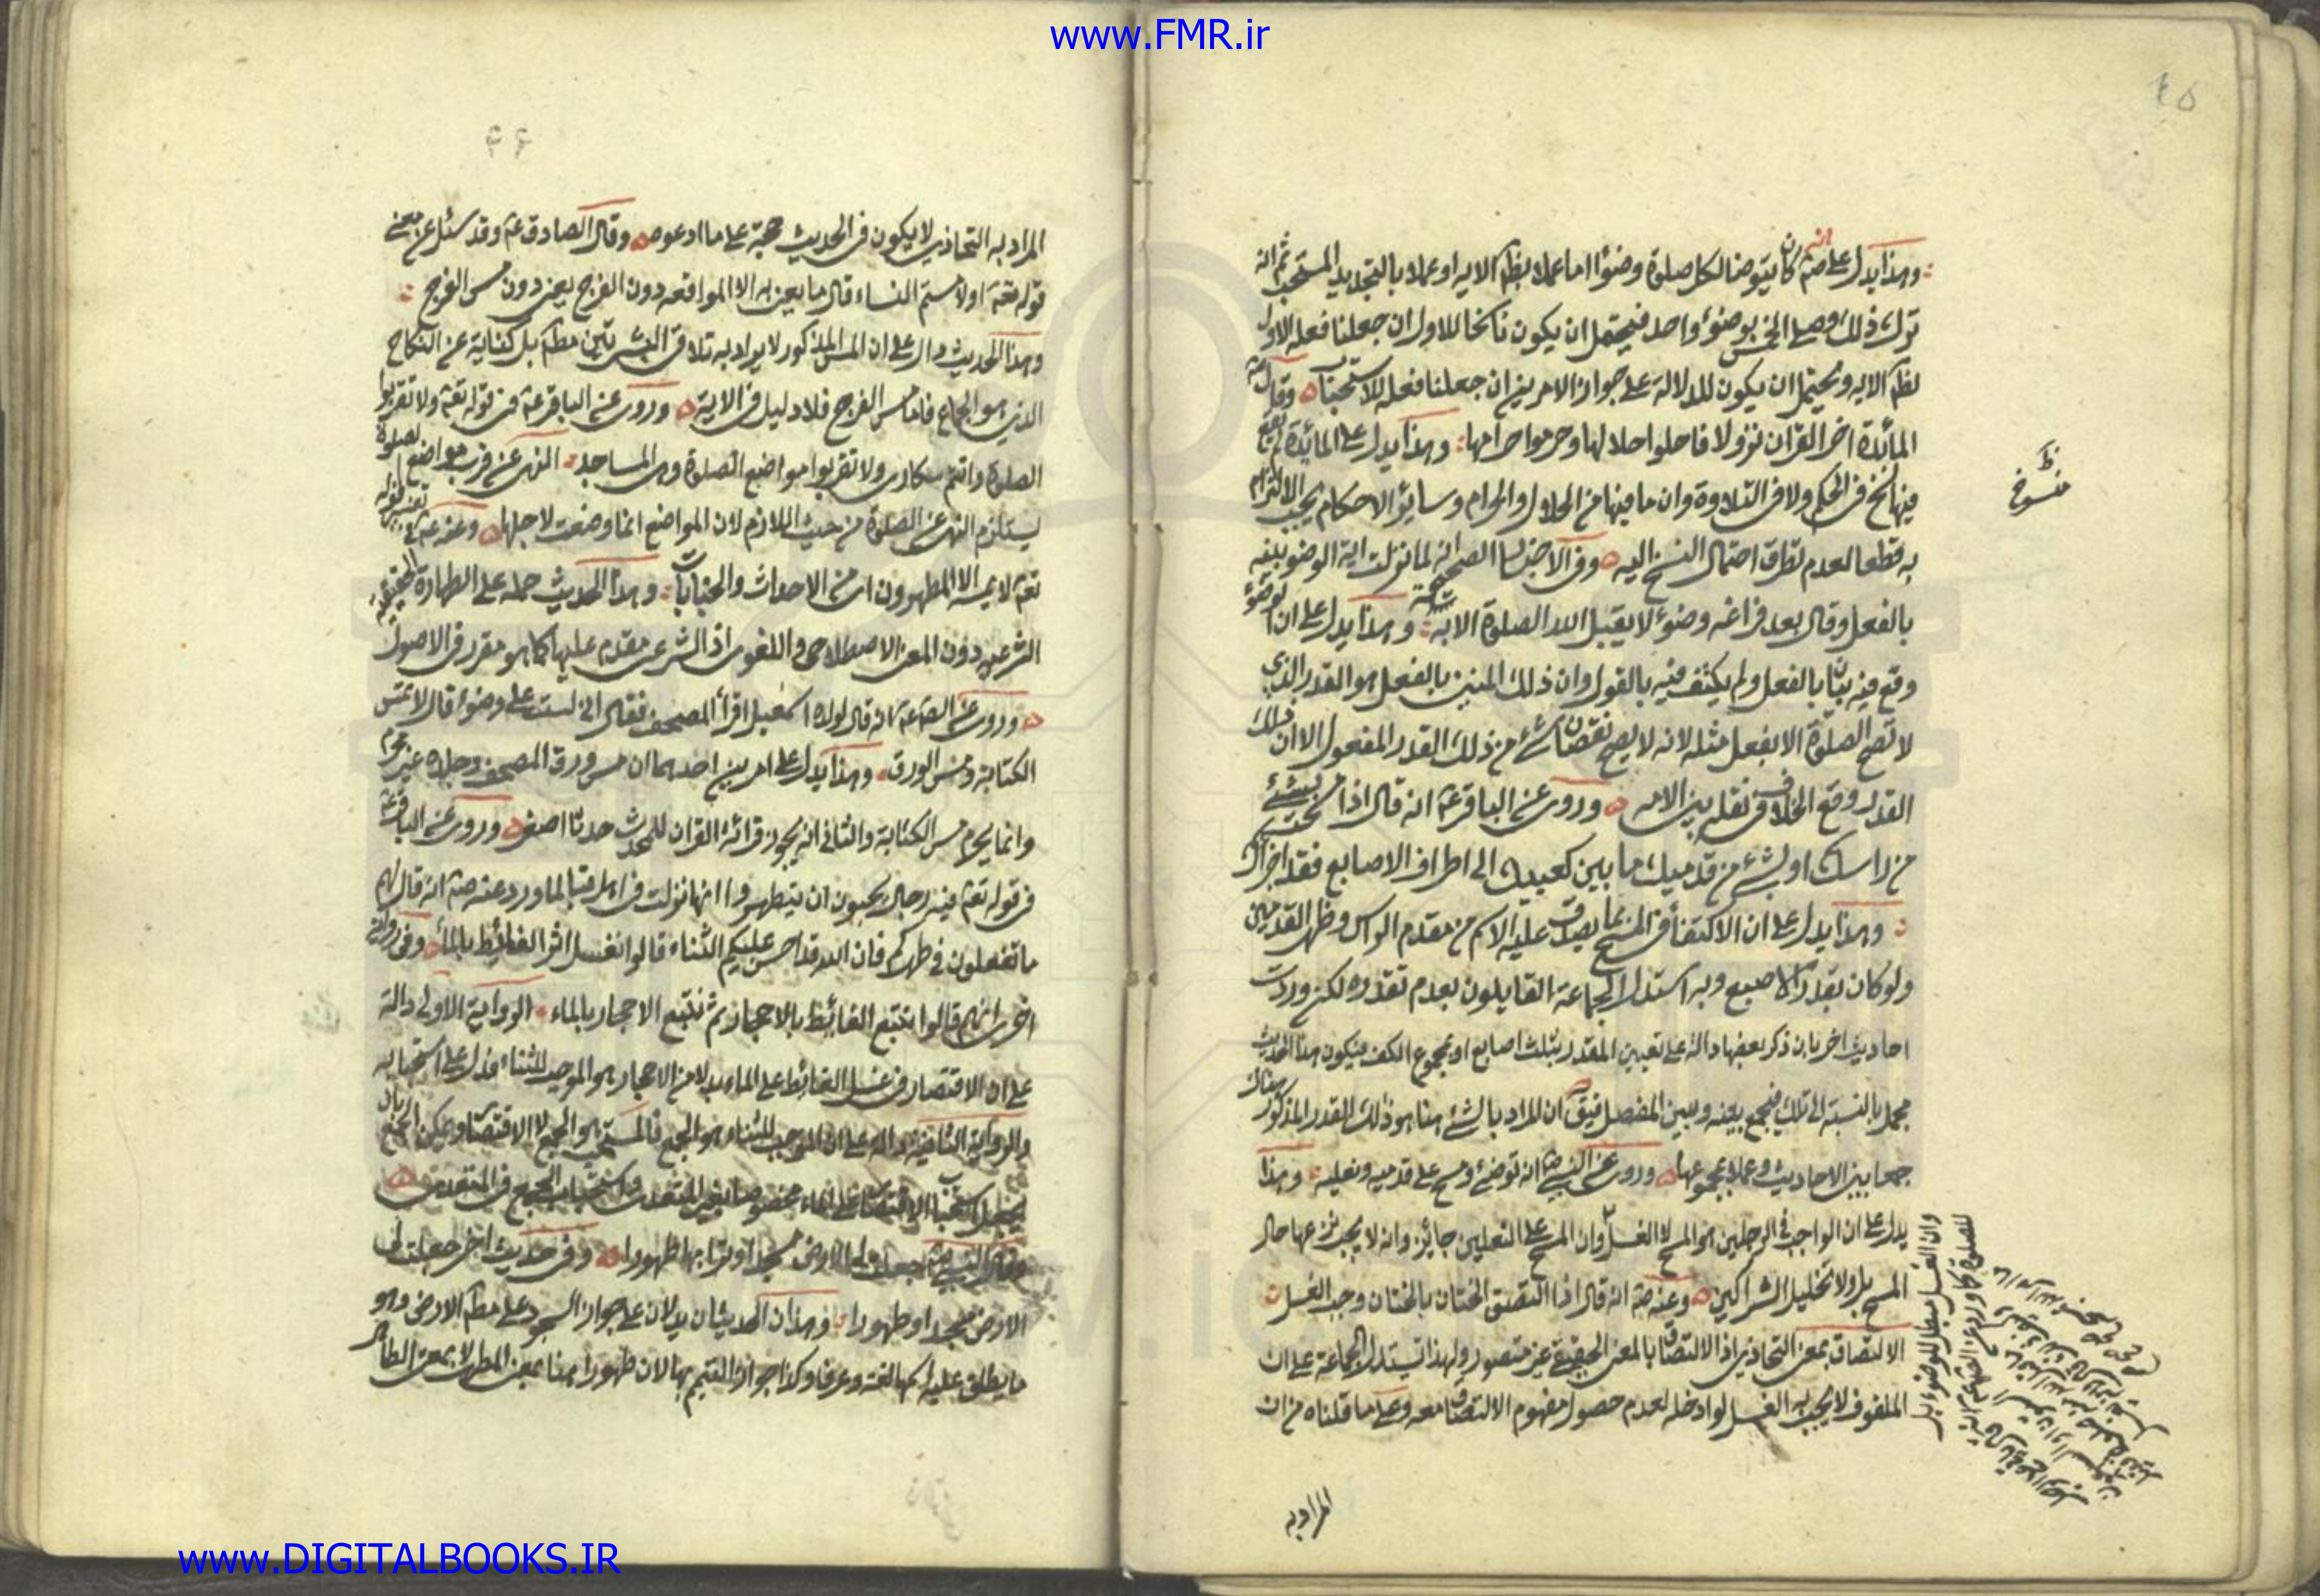 www.FMR.ir
وهذا يدل على انه صم كان يتوضا لكل صلوة وضوءا اما عملا بظم الاية او عملا بالتجديد المستحب ثم انه
ترك ذلك وصلى الخمس بوضوء واحد فيحتمل ان يكون ناسخا للاول ان جعلنا فعله الاول
لظم الاية ويحتمل ان يكون للدلالة على جواز الامرين ان جعلنا فعله للاستحباب وقال
المائدة اخر القران نزولا فاحلوا حلالها وحرموا حرامها وهذا يدل على المائدة لم يقع
فيها نسخ في الحكم ولا في التلاوة وان ما فيها من الحلال والحرام وساير الاحكام يجب الالتزام
به قطعا لعدم تطرق احتمال النسخ اليه وفي الاخبار الصحيحة انه لما نزلت اية الوضوء بينه
بالفعل وقال بعد فراغه وضوء لا يقبل الله الصلوة الا به وهذا يدل على ان الوضوء
وقع فيه بيانا بالفعل ولم يكتف فيه بالقول وان ذلك المبين بالفعل هو القدر الذي
لا تصح الصلوة الا بفعل مثله لانه لا يصح نقصان شئ من ذلك القدر المفعول الا ان ذلك
القدر وقع الخلاف في نقله بين الامة وروى عن الباقر عم انه قال اذا مسحت بشئ
من راسك او بشئ من قدميك ما بين كعبيك الى اطراف الاصابع فقد اجزاك
وهذا يدل على ان الاكتفاء في المسح بما يصدق عليه الاسم من مقدم الراس وظهر القدمين
ولو كان بقدر الاصبع وبه استدل الجماعة القايلون بعدم تقدره لكن وردت
احاديث اخر بان ذكر بعضها دالة على تعيين المقدر بثلث اصابع او بمجموع الكف فيكون هذا الحديث
مجمل بالنسبة الى تلك فيجمع بينه وبين المفصل فيق ان المراد بالشئ هنا هو ذلك القدر المذكور هناك
جمعا بين الاحاديث وعملا بمجموعها وروى عن النبي ص انه توضئ ومسح على قدميه ونعليه وهذا
يدل على ان الواجب في الرجلين هو المسح لا الغسل وان المسح على النعلين جائز وانه لا يجب نزعها حال
المسح بل ولا تخليل الشراكين وعنه صم انه قال اذا التصق الختان بالختان وجب الغسل
الالتصاق بمعنى التحاذي اذ الالتصاق بالمعنى الحقيقي غير متصور ولهذا استدل الجماعة على ان
الملفوف لا يجب به الغسل لو ادخله لعدم حصول مفهوم الالتصاق معه وعلى ما قلناه من ان
المراد به
منسوخ
وان الغسل مبطل للوضوء بل
المراد به التحاذي لا يكون في الحديث حجة على ما ادعوه وقال الصادق عم وقد سئل عن معنى
قوله تعم او لامستم النساء قال ما يعنى به الا المواقعه دون الفرج يعنى دون مس الفرج
وهذا الحديث دال على ان المس المذكور لا يراد به تلاقي البشرتين مطم بل كناية عن النكاح
الذي هو الجماع فاما مس الفرج فلا دليل في الاية وروى عن الباقر عم في قوله تعم ولا تقربوا
الصلوة وانتم سكارى ولا تقربوا مواضع الصلوة وهى المساجد النهى عن قرب مواضع الصلوة
يستلزم النهى عن الصلوة من حيث اللازم لان المواضع انما وضعت لاجلها وعنه عم في تفسير قوله
تعم لا يمسه الا المطهرون اى من الاحداث والجنابات وهذا الحديث حمله على الطهارة الحقيقية
الشرعية دون المعنى الاصطلاحى واللغوى اذ الشرعى مقدم عليها كما هو مقرر في الاصول
وروى عن الصم عم انه قال لولده اسمعيل اقرأ المصحف فقال انى لست على وضوء قال لا تمس
الكتابة ومس الورق وهذا يدل على امرين احدهما ان مس ورق المصحف وجلده غير محرم
وانما يحرم مس الكتابة والثانى انه يجوز قرائة القران للمحدث حدثا اصغر وروى عن الباقر عم
في قوله تعم فيه رجال يحبون ان يتطهروا انها نزلت في اهل قبا لما ورد عنه صم انه قال لهم
ما تفعلون في طهركم فان الله قد احسن عليكم الثناء قالوا نغسل اثر الغائط بالماء وفي رواية
اخرى انهم قالوا نتبع الغائط بالاحجار ثم نتبع الاحجار بالماء الرواية الاولى دالة
على ان الاقتصار في غسل الغائط على الماء بدلا من الاحجار هو الموجب للثناء فدل على استحبابه
والرواية الثانية دالة على ان الموجب للثناء هو الجمع فالمستحب هو الجمع لا الاقتصار ويمكن الجمع بان
يجعل استحباب الاقتصار على الماء مخصوصا بغير المتعدى واستحباب الجمع في المتعدى
وقال النبي ص جعلت لي الارض مسجدا وترابها طهورا وفي حديث اخر جعلت لي
الارض مسجدا وطهورا وهذان الحديثان يدلان على جواز السجود على مطم الارض وهو
ما يطلق عليه اسمها لغة وعرفا وكذا جواز التيمم بها لان طهورا هنا بمعنى المطهر لا بمعنى الطاهر
www.DIGITALBOOKS.IR